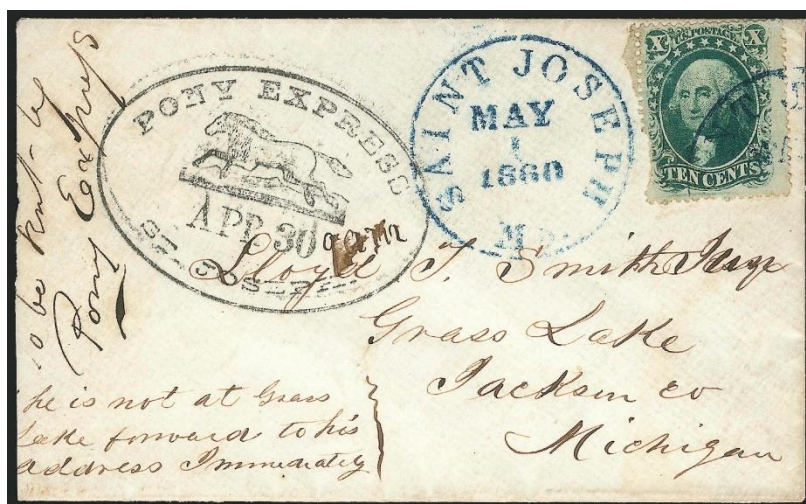 To be sent by
Pony Express
PONY EXPRESS
APR 30
ST. JOSEPH
SAINT JOSEPH
MAY
1
1860
Mo.
X U.S. POSTAGE X
TEN CENTS
Lloyd T. Smith
Grass Lake
Jackson co
Michigan
he is not at Grass
Lake forward to his
address Immediately